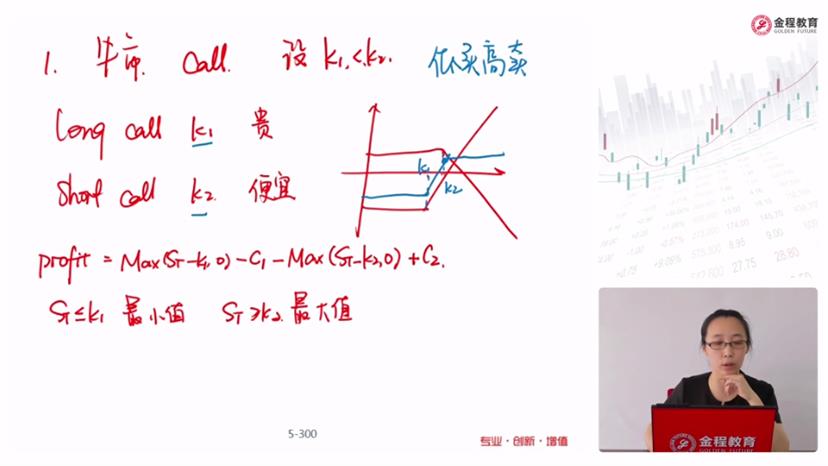 金程教育
GOLDEN FUTURE
1. 牛市 Call. 设 K₁<K₂. 低买高卖
Long call K₁ 贵
Short call K₂ 便宜
K₁
K₂
profit = Max(S_T-K₁,0)-C₁-Max(S_T-K₂,0)+C₂.
S_T≤K₁ 最小值 S_T≥K₂ 最大值
5-300
专业·创新·增值
金程教育